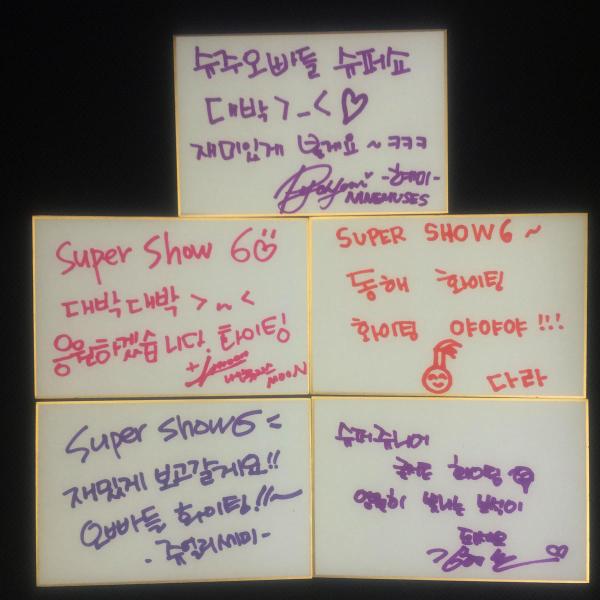 슈주오빠들 슈퍼쇼
대박 >_< ♡
재미있게 볼게요 ~ ㅋㅋㅋ
-혜미-
NINEMUSES
Super Show 6
대박 대박 >~<
응원하겠습니다. 화이팅!
나인뮤지스
MOON
SUPER SHOW 6 ~
동해 화이팅
화이팅 야야야 !!!
다라
Super Show 6 =
재밌게 보고갈게요!!
오빠들 화이팅!!~
-쥬얼리세미-
슈퍼쥬니어
화이팅
영원히 빛나는